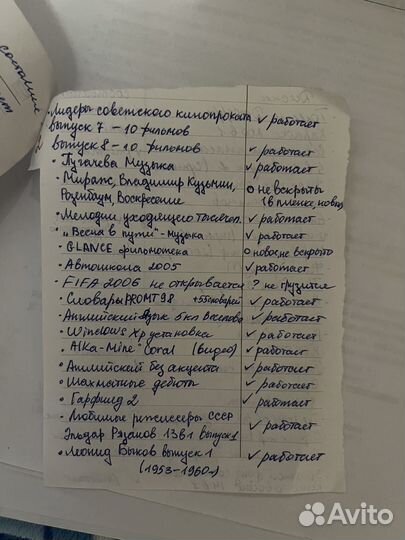 составлие
• Лидеры советского кинопроката
выпуск 7 – 10 фильмов ✓ работает
выпуск 8 – 10 фильмов ✓ работает
• Пугачева Музыка ✓ работает
• Мираж, Владимир Кузьмин, о не вскрыты
Розенбаум, Воскресение (в пленке, новые)
• Мелодии уходящего тысячел. ✓ работает
• „Весна в пути" – музыка ✓ работает
• GLANCE фильмотека о новое, не вскрыто
• Автошкола 2005 ✓ работает
• FIFA 2006 не открывается ? не грузится
• Словары PROMT 98 +55 словарей ✓ работает
• Английский язык 5 кл Веселова ✓ работает
• Windows Xp установка ✓ работает
• Alka-Mine Coral (видео) ✓ работает
• Английский без акцента ✓ работает
• Шахматные дебюты ✓ работает
• Гарфилд 2 ✓ работает
• Любимые режиссеры СССР ✓ работает
Эльдар Рязанов 13 в 1 выпуск 1
• Леонид Быков выпуск 1 ✓ работает
(1953–1960г)
Avito